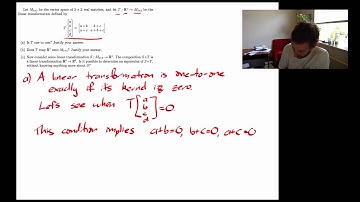 Let M₂ₓ₂ be the vector space of 2 × 2 real matrices, and let T : R⁴ → M₂ₓ₂ be the
linear transformation defined by
(a) Is T one to one? Justify your answer.
(b) Does T map R⁴ onto M₂ₓ₂? Justify your answer.
(c) Now consider some linear transformation S : M₂ₓ₂ → R⁴. The composition S∘T is
a linear transformation R⁴ → R⁴. Is it possible to determine an eigenvalue of S∘T,
without knowing anything more about S?
a) A linear transformation is one-to-one
exactly if its kernel is zero.
Let's see when T [a b c d] = 0.
This condition implies a+b=0, b+c=0, a+c=0